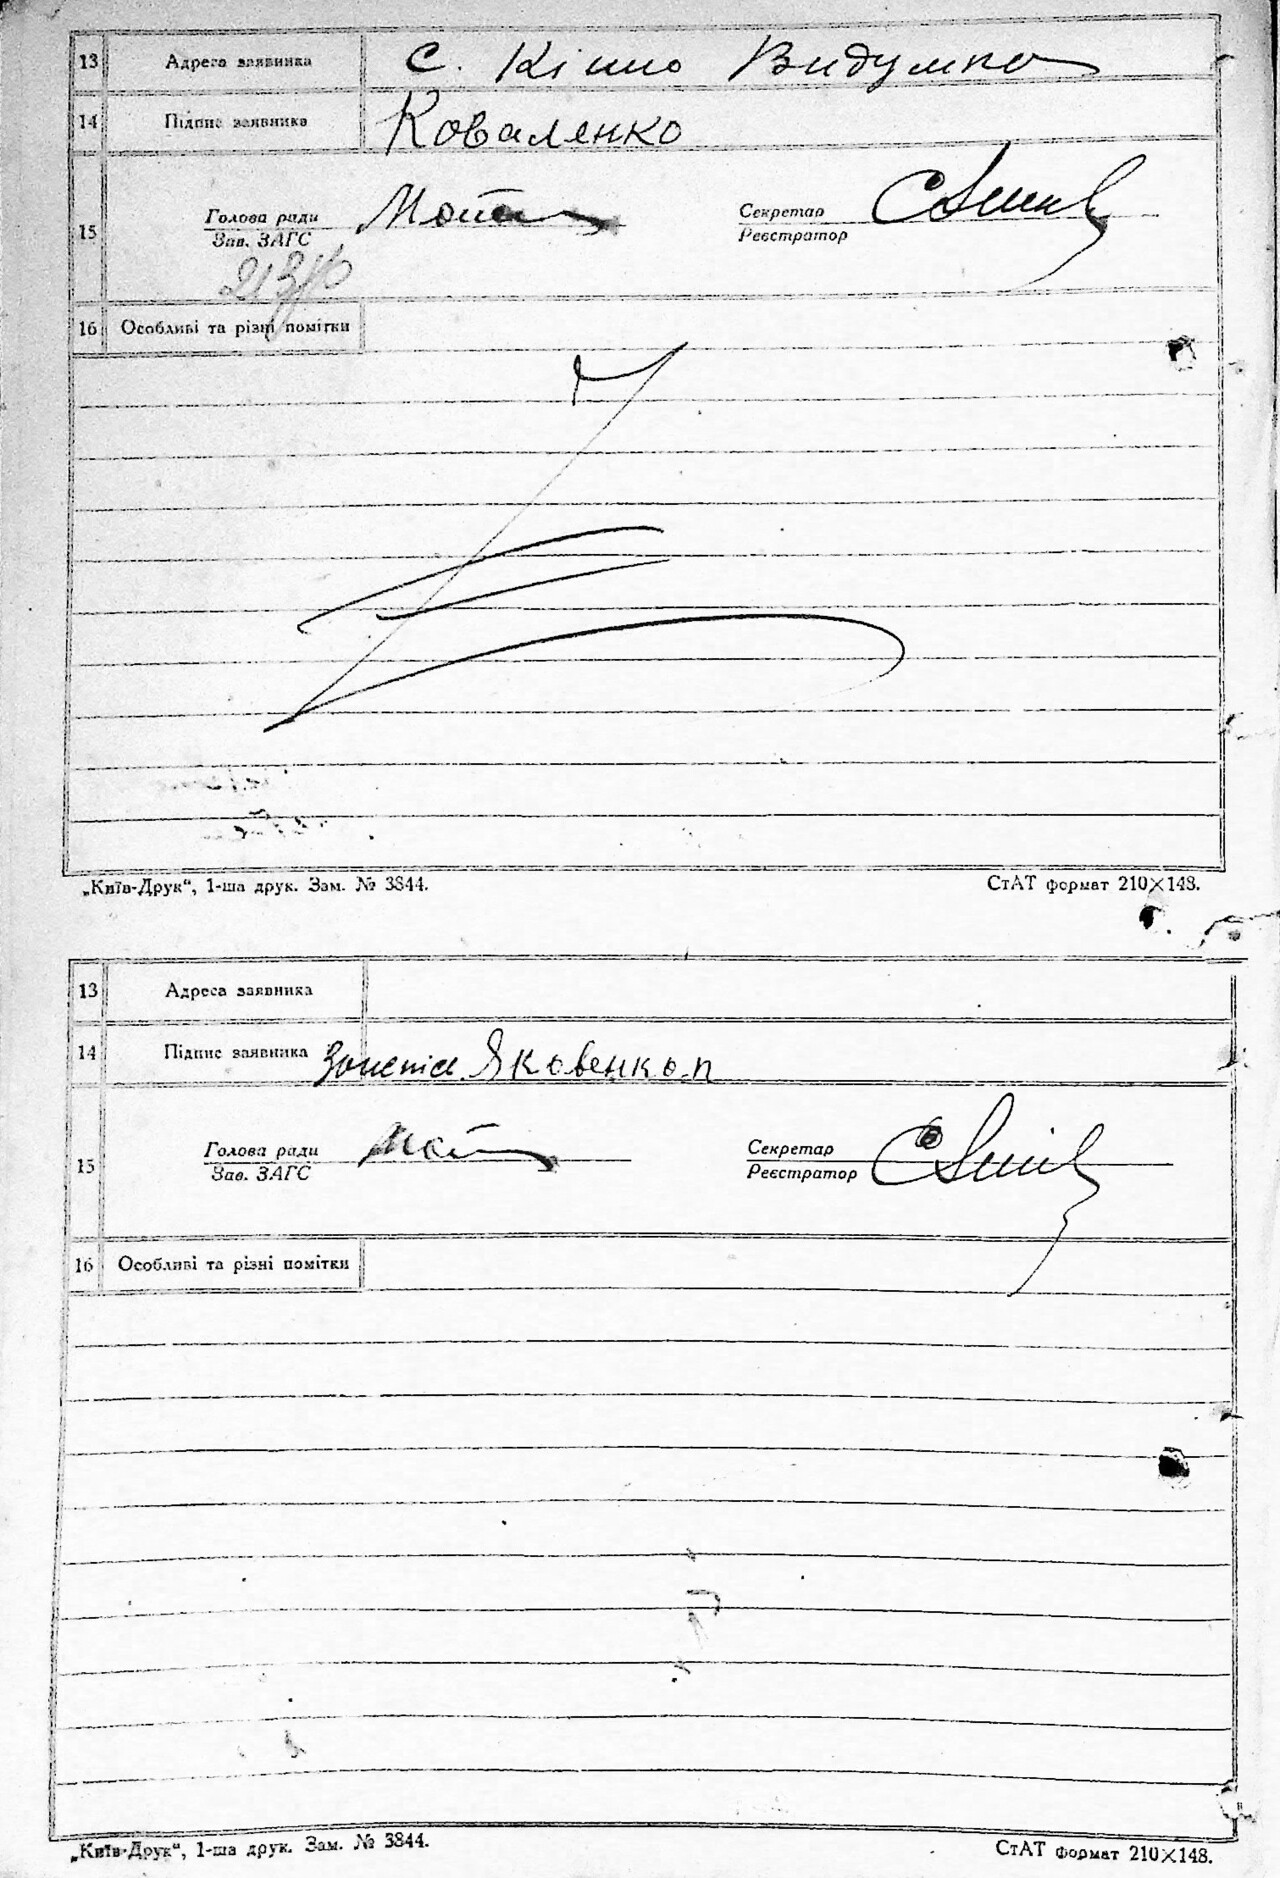 13 Адреса заявника с. Кішо Видумка
14 Підпис заявника Коваленко
15 Голова ради Секретар
Зав. ЗАГС Реєстратор
16 Особливі та різні помітки
„Київ-Друк“, 1-ша друк. Зам. № 3844. СтАТ формат 210×148.
13 Адреса заявника
14 Підпис заявника Яковенко
15 Голова ради Секретар
Зав. ЗАГС Реєстратор
16 Особливі та різні помітки
„Київ-Друк“, 1-ша друк. Зам. № 3844. СтАТ формат 210×148.